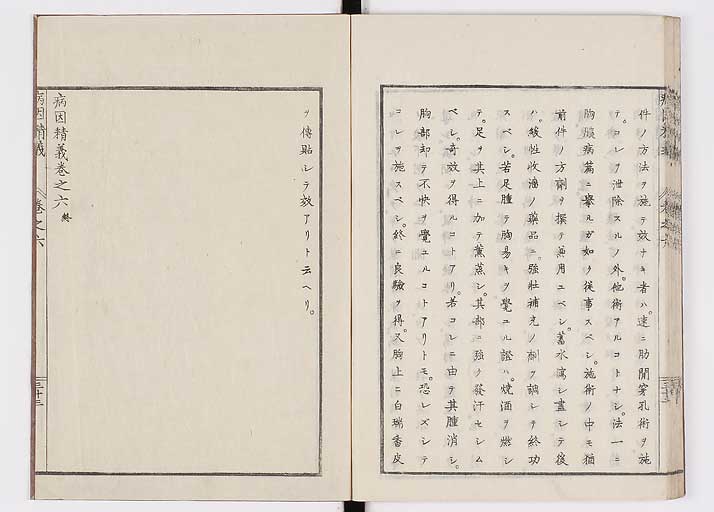 件ノ方法ヲ施テ效ナキ者ハ。速ニ肋間穿孔術ヲ施
テ。コレヲ泄除スルノ外。他術アルコトナシ。法一ニ
胸膜病篇ニ擧ルガ如ク從事スベシ。施術ノ中モ猶
前件ノ方劑ヲ撰テ兼用ユベシ。蓄水瀉シ盡シテ後
ハ。緩性收濇ノ藥品ニ。強壯補充ノ劑ヲ調シテ終功
スベシ。若足腫テ胸易キヲ覺ユル證ハ。燒酒ヲ燃シ
テ。足ヲ其上ニ加テ薰蒸シ。其部ニ強ク發汗セシム
ベシ。奇效ヲ得ルコトアリ。若コレニ由テ其腫消シ。
胸部却テ不快ヲ覺ユルコトアリトモ。恐レズシテ
コレヲ施スベシ。終ニ良驗ヲ得。又胸上ニ白瑞香皮
ヲ傳貼シテ效アリト云ヘリ。
病因精義卷之六 終
病因精義
卷之六
三十三